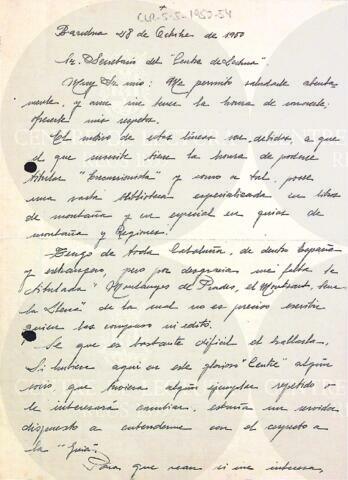 CLR-5-5-1950-54
Barcelona 28 de Octubre de 1950
Sr. Secretario del "Centro de Lectura".
Muy Sr. mio: Me permito saludarle atenta-
mente, y a me tener la honra de
mis respetos.
El motivo de estas lineas son debidas, a que
el que suscribe tiene la honra de poderse
titular "Excursionista" y como a tal posee
una vasta Biblioteca especializada en libros
de montaña y en especial en guias de
montaña y Regiones.
Tengo de toda Cataluña, de dentro España
y extranjero, pero por desgracia me falta la
titulada "Montanyes de Prades, el Montsant, Serra
la Llena" de la cual no es preciso escribir
quien las compuso ni editó.
Se que es bastante dificil el hallarla.
Si hubiese aqui en este glorioso "Centre" algún
socio que tuviera algún ejemplar repetido o
le interesara cambiar, estaria un servidor
dispuesto a entenderme con el respecto a
la "Guia".
Para que vean si me interesa,